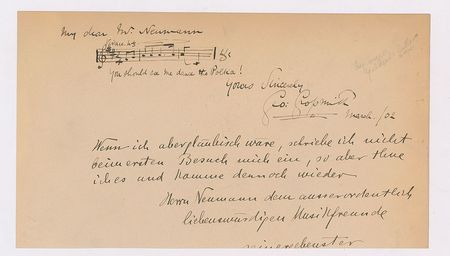 My dear Mr. Neumann
You should see me dance the Polka!
Yours Sincerely
Geo: Grossmith
March /02
Wenn ich abergläubisch wäre, schriebe ich nicht
beim ersten Besuch mich ein, so aber thue
ich es und komme dennoch wieder
Herrn Neumann dem ausserordentlich
liebenswürdigen Musikfreunde